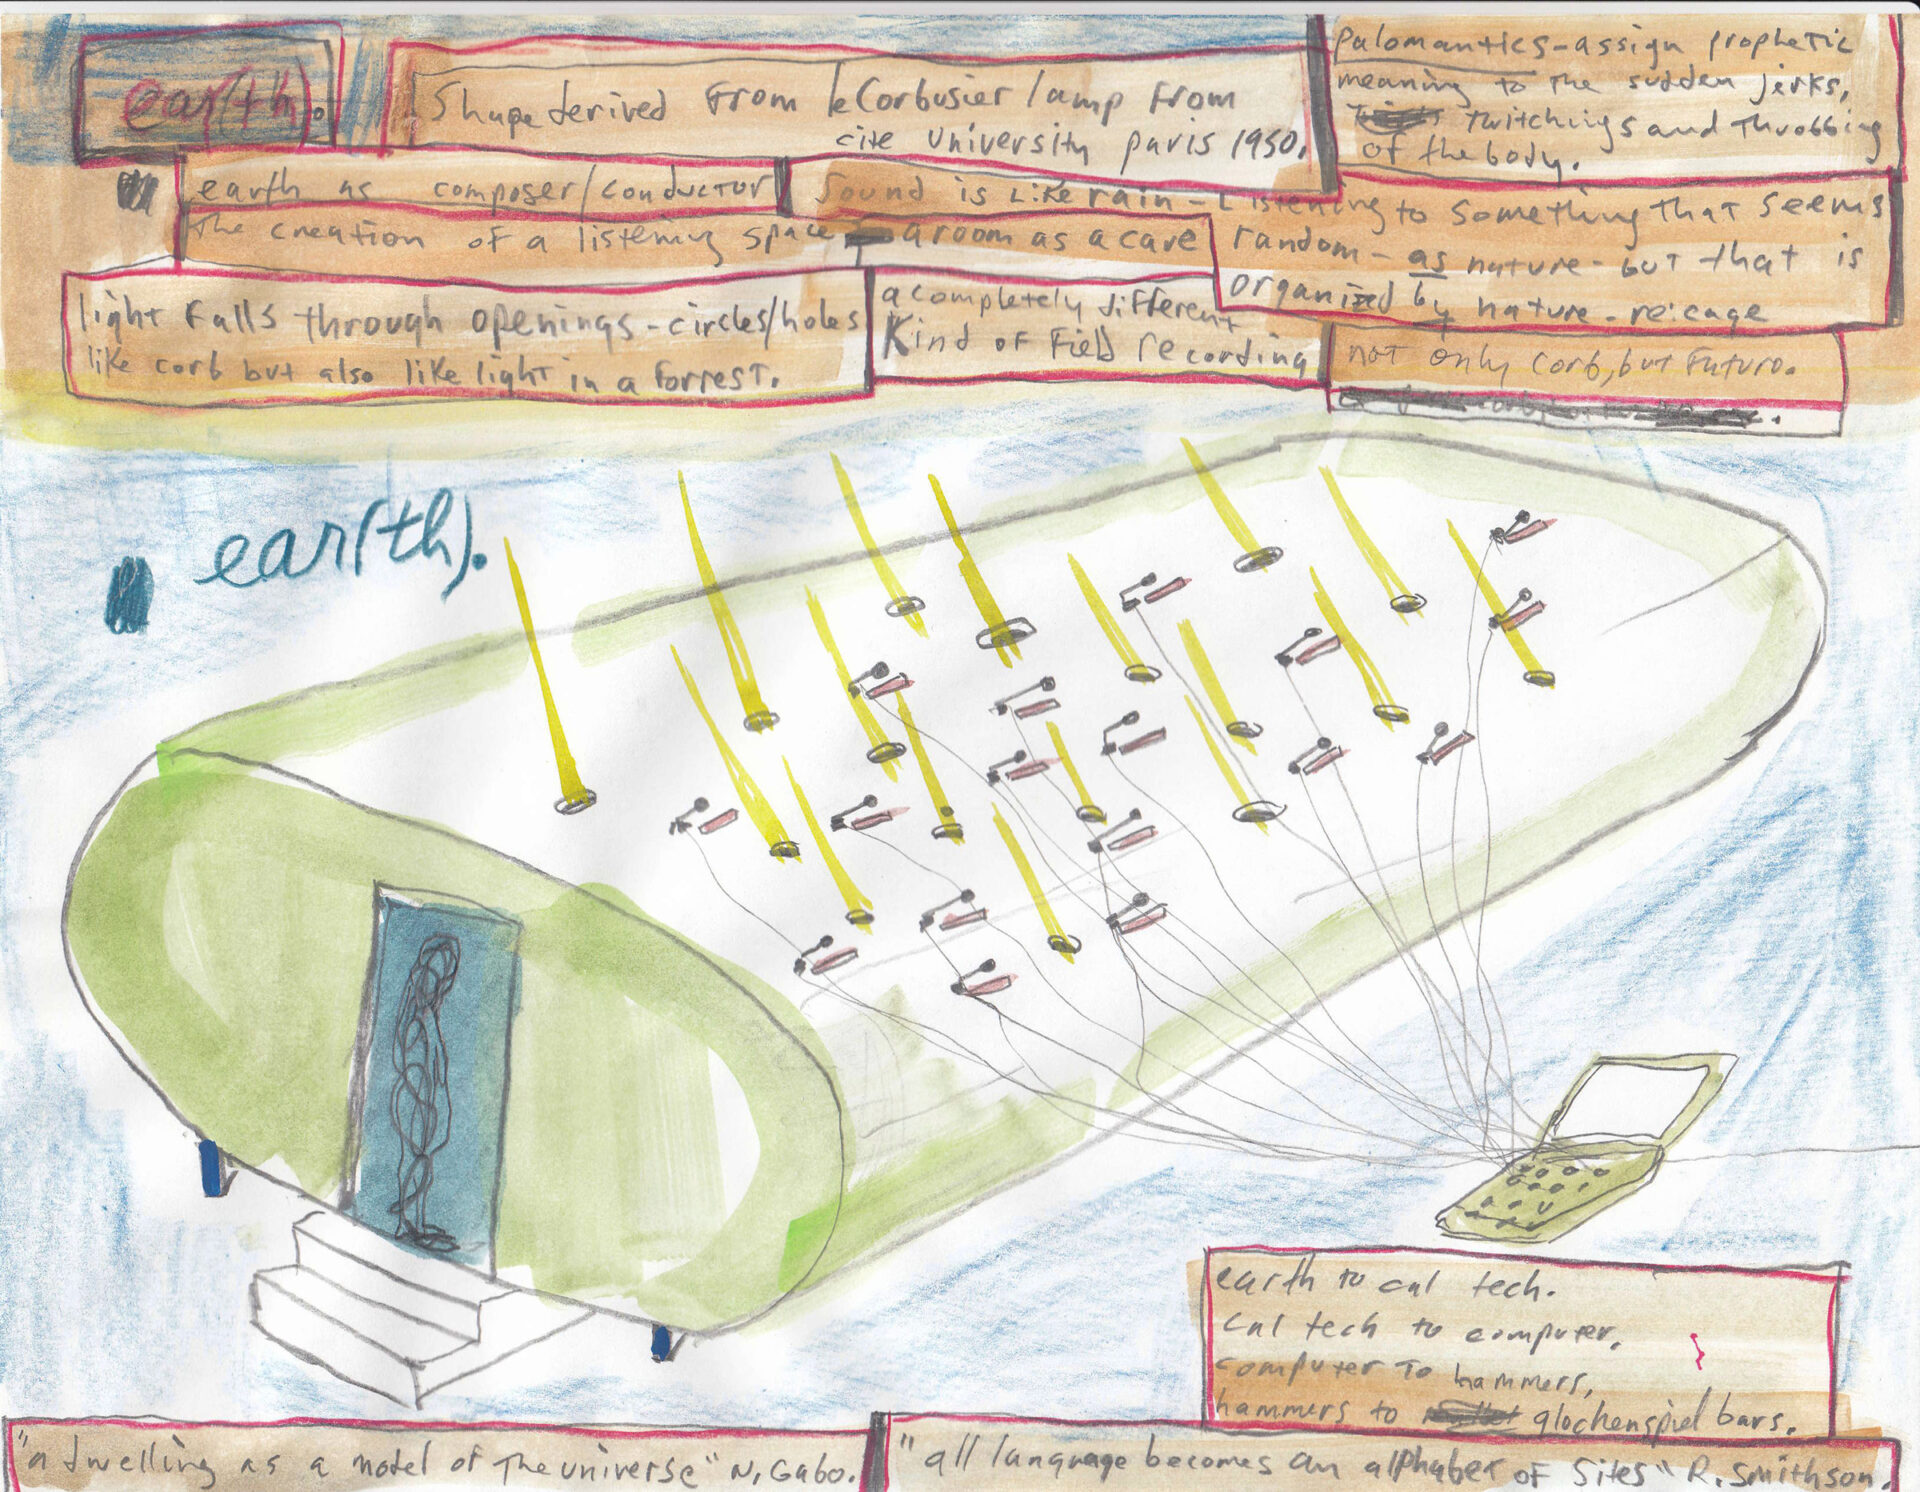 ear(th).
Shape derived from leCorbusier lamp from
cite university paris 1950.
palomantics-assign prophetic
meaning to the sudden jerks,
twitchings and throbbing
of the body.
earth as composer/conductor
the creation of a listening space
sound is like rain - Listening to something that seems
random - as nature - but that is
organized by nature - re: cage
a room as a cave
light falls through openings - circles/holes
like corb but also like light in a forrest.
a completely different
kind of field recording
not only corb, but futuro.
ear(th).
earth to cal tech.
cal tech to computer.
computer to hammers,
hammers to glockenspiel bars.
"a dwelling as a model of the universe" N. Gabo.
"all language becomes an alphabet of sites" R. Smithson.